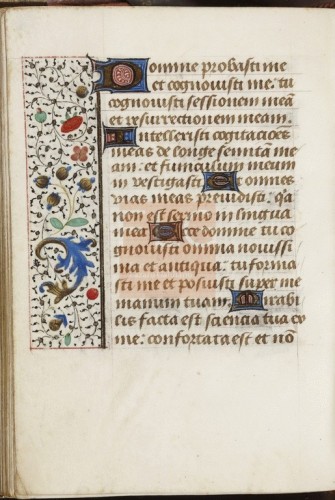 Domine probasti me
et cognouisti me: tu
cognouisti sessionem meã
et resurrectionem meam.
Intellexisti cogitacões
meas de longe semitã me
am: et funiculum meum
in vestigasti Et omnes
vias meas preuidisti: q̃a
non est sermo in lingua
mea Ecce domine tu co
gnouisti omnia nouissi
ma et antiqua: tu forma
sti me et posuisti super me
manum tuam. Mirabi
lis facta est sciencia tua ex
me: confortata est et nõ